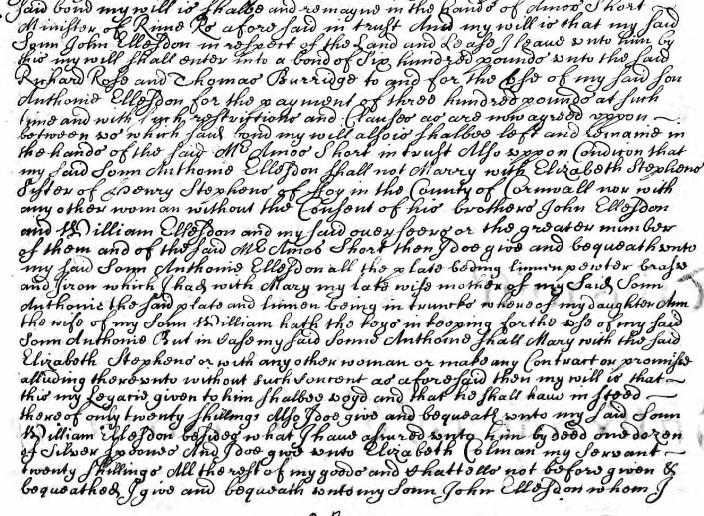 said bond my will is shalbe and remayne in the hands of Amos Short
Minister of Lime Rs aforesaid in trust And my will is that my said
Sonn John Ellesdon in respect of the Land and Lease I leave unto him by
this my will shall enter into a bond of Six hundred pounds unto the said
Richard Rose and Thomas Burridge to and for the Use of my said son
Anthonie Ellesdon for the payment of three hundred pounds at such
time and with such restrictions and Clauses as are now agreed uppon
between us which said bond my will also is shalbee left and remaine in
the hands of the said Mr Amos Short in trust Also uppon Condicon that
my said Sonn Anthonie Ellesdon shall not Marry with Elizabeth Stephens
Sister of Henry Stephens of in the County of Cornwall nor with
any other woman without the Consent of his brothers John Ellesdon
and William Ellesdon and my said overseers or the greater number
of them and of the said Mr Amos Short then I doe give and bequeath unto
my said Sonn Anthonie Ellesdon all the plate beding linnen pewter brasse
and Iron which I had with Mary my late wife mother of my said Sonn
Anthonie the said plate and linnen being in truncks whereof my daughter Ann
the wife of my Sonn William hath the keys in keeping for the use of my said
Sonn Anthonie But in Case my said Sonne Anthonie shall Mary with the said
Elizabeth Stephens or with any other woman or make any Contract or promise
alluding thereunto without such Concent as aforesaid then my will is that
this my Legacie given to him shalbee voyd and that he shall have in steed
thereof only twenty shillings Also I doe give and bequeath unto my said Sonn
William Ellesdon besides what I have assured unto him by deed one dozen
of Silver Spoones And I doe give unto Elizabeth Colman my Servant
twenty shillings All the rest of my goods and Chattells not before given &
bequeathed I give and bequeath unto my Sonn John Ellesdon whom I